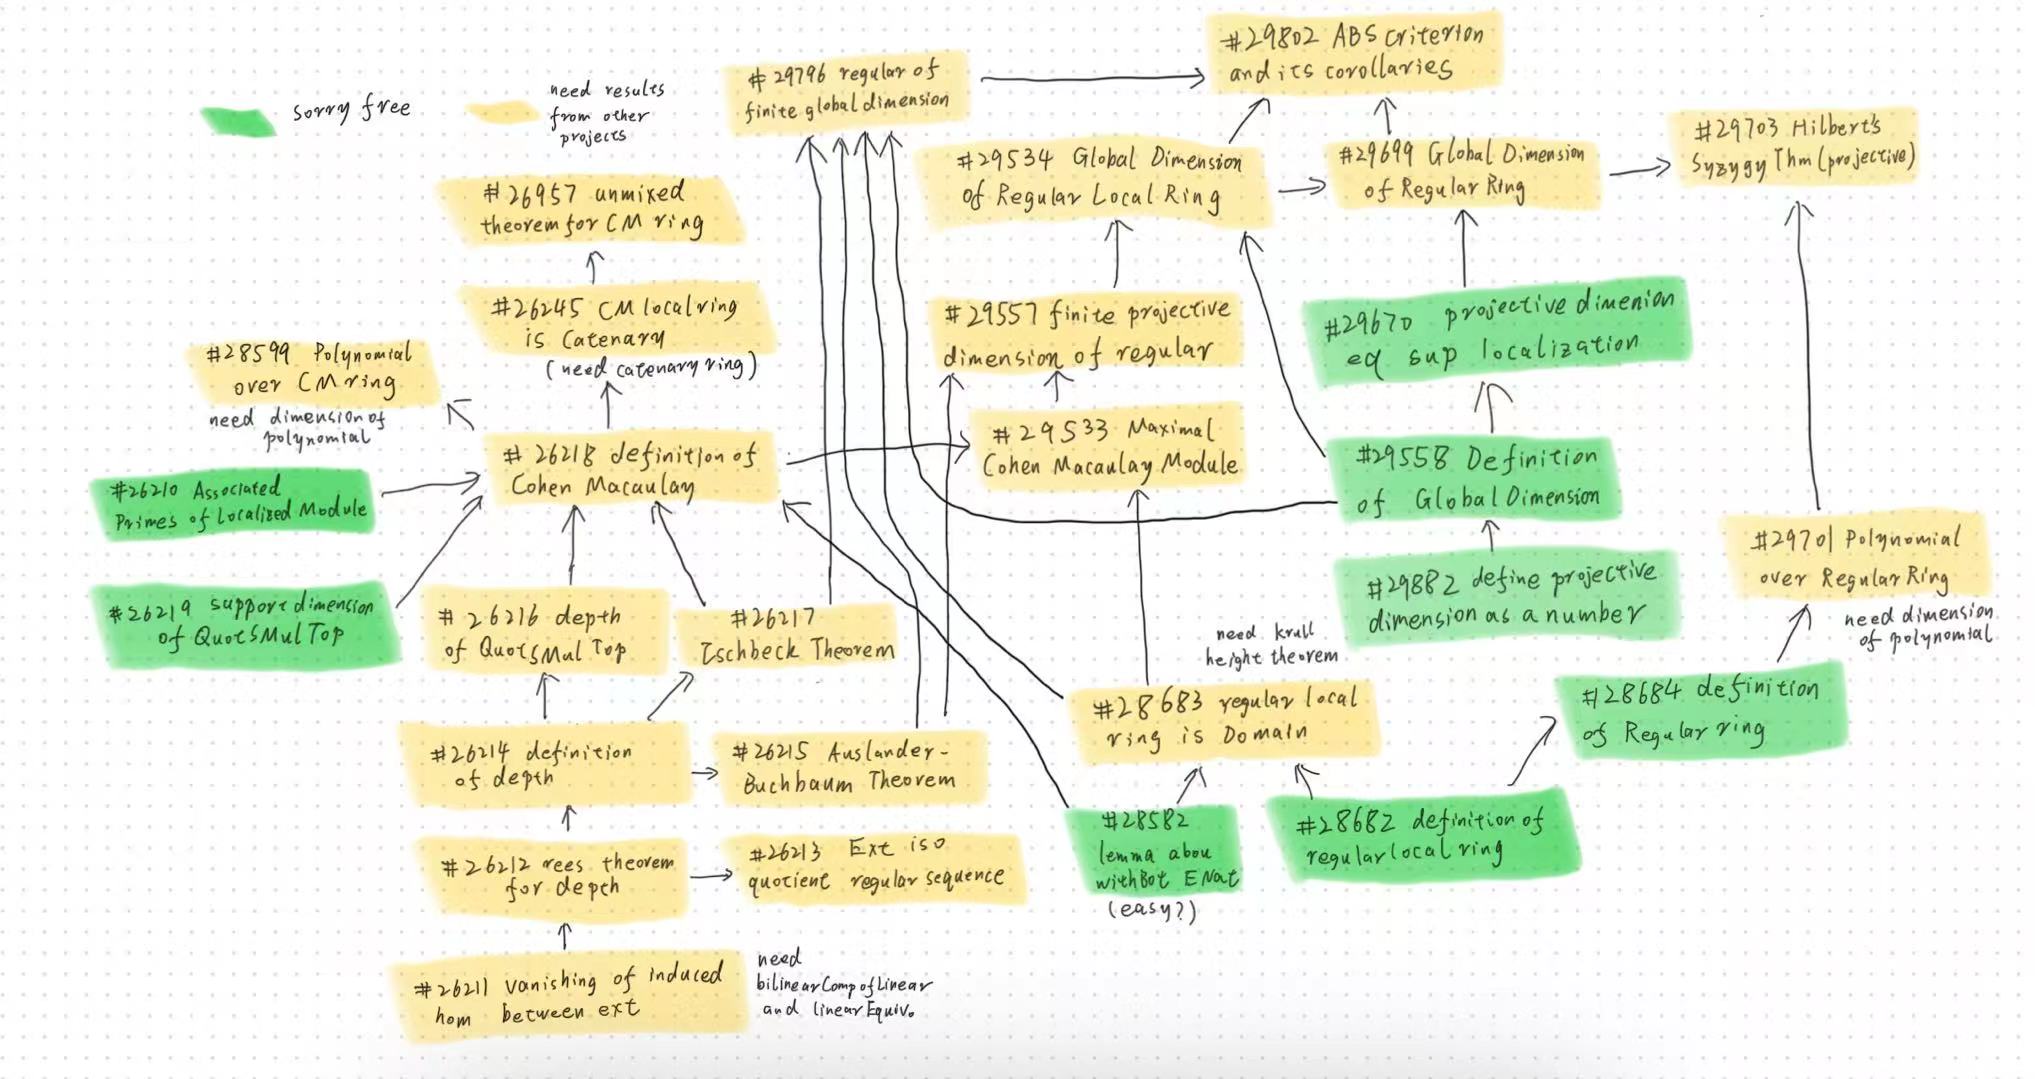 sorry free
need results
from other
projects
# 29796 regular of
finite global dimension
#29802 ABS criterion
and its corollaries
#29703 Hilbert's
Syzygy Thm (projective)
#29534 Global Dimension
of Regular Local Ring
#29699 Global Dimension
of Regular Ring
# 26957 unmixed
theorem for CM ring
#26245 CM local ring
is Catenary
(need catenary ring)
#28599 Polynomial
over CM ring
need dimension of
polynomial
#29557 finite projective
dimension of regular
#29670 projective dimenion
eq sup localization
# 26218 definition of
Cohen Macaulay
# 29533 Maximal
Cohen Macaulay Module
#29558 Definition
of Global Dimension
#26210 Associated
Primes of Localized Module
#26219 support dimension
of QuotSMulTop
# 26216 depth
of QuotSMulTop
#26217
Ischbeck Theorem
#29882 define projective
dimension as a number
#29701 Polynomial
over Regular Ring
need dimension
of polynomial
need krull
height theorem
#28683 regular local
ring is Domain
#28684 definition
of Regular ring
#26214 definition
of depth
#26215 Auslander-
Buchbaum Theorem
#28582
lemma abou
withBot ENat
(easy?)
#28682 definition of
regular local ring
#26212 rees theorem
for depth
#26213 Ext iso
quotient regular sequence
#26211 vanishing of induced
hom between ext
need
bilinearCompOfLinear
and linearEquiv.